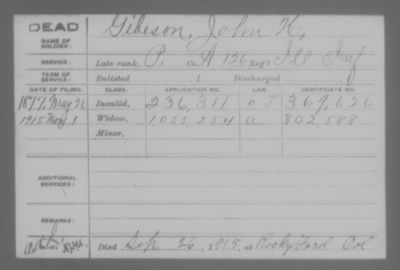 DEAD
NAME OF SOLDIER: Gibeson, John H,
SERVICE: Late rank, P. Co. A 126 Reg't Ill Inf
TERM OF SERVICE: Enlisted , 1 Discharged , 1
DATE OF FILING. CLASS. APPLICATION NO. LAW. CERTIFICATE NO.
1877, May 26 Invalid, 236,311 369,626
1915 Nov 1 Widow, 1,055,254 a 802,588
Minor,
ADDITIONAL SERVICES:
REMARKS:
Died Sep 26, 1915, at Rocky Ford Col